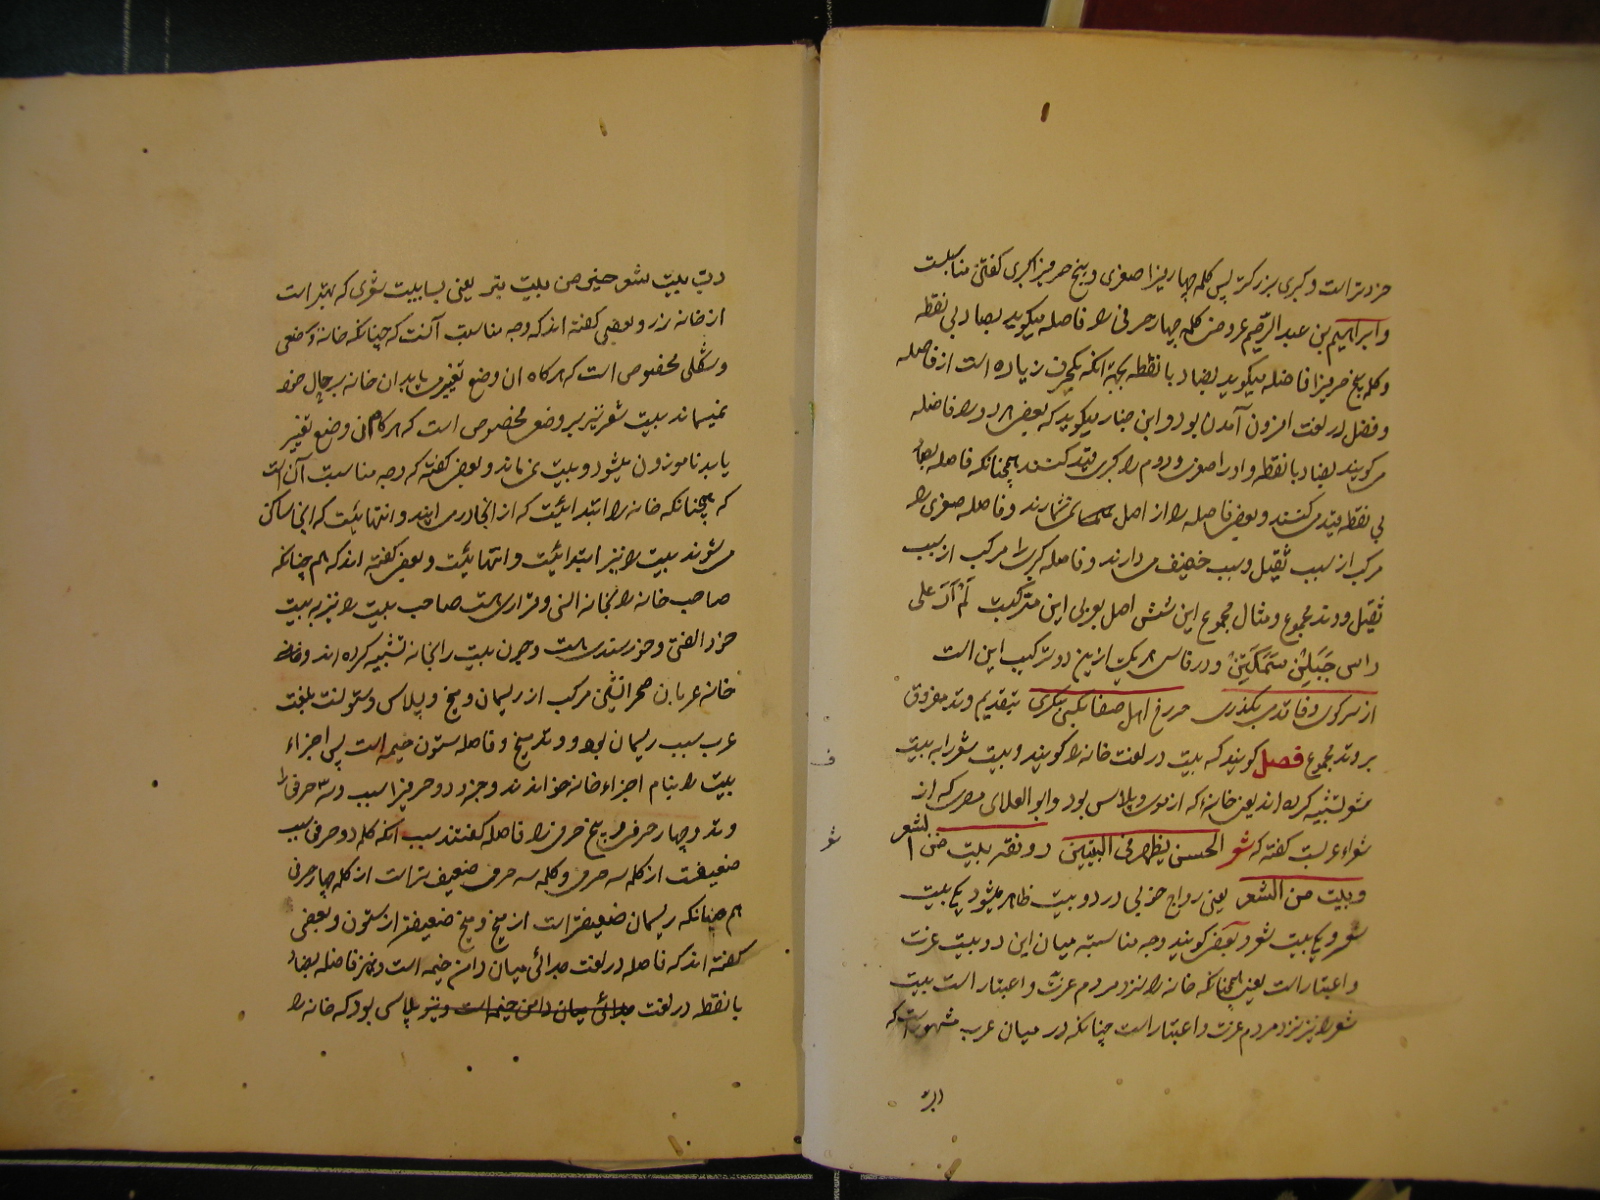 خردتر است و کبری بزرگتر پس کلمه چهار حرفیرا صغری و پنج حرفیرا کبری گفتن مناسبست
و ابراهیم بن عبد الرحیم عروضی کلمه چهار حرفی را فاصله میگوید بصاد بی نقطه
و کلمه پنج حرفیرا فاضله میگوید بضاد با نقطه بجهة آنکه یکحرف زیاده است از فاصله
و فضل در لغت افزون آمدن بود و ابن جنار میگوید که بعضی هر دو را فاضله
می گویند بضاد با نقطه و اول را صغری و دوم را کبری قید کنند همچنانکه فاصله بصاد
بی نقطه قید می کنند و بعضی فاصله را از اصل نمیشمارند و فاصله صغری را
مرکب از سبب ثقیل و سبب خفیف می دارند و فاصله کبری را مرکب از سبب
ثقیل و وتد مجموع و مثال مجموع این شش اصل بعربی این ترکیبست لَمْ اَرَ علی
راس جَبَلِنْ سَمَکَتِنْ و در فارسی هر یک ازین دو ترکیب این است
از سر کوی وفا قدمی بگذری مرغ اهل صفا نکنی بکری بتقدیم وتد مفروق
بر وتد مجموع فصل گویند که بیت در لغت خانه را گویند و بیت شعر را به بیت
شعر تشبیه کرده اند یعنی خانهٔ که از موی و پلاس بود و ابو العلای معری که از
شعراء عربست گفته که شعر الحسن یظهر فی البیتین رونقه بیت من الشعر
و بیت من الشعر یعنی رواج خوبی در دو بیت ظاهر میشود یک بیت
شعر و یک بیت شعر و بعضی گویند وجه مناسبت میان این دو بیت عزت
و اعتبار است یعنی همچنانکه خانه را نزد مردم عزت و اعتبار است بیت
شعر را نیز نزد مردم عزت و اعتبار است چنانکه در میان عرب مشهور است که
ربّ
ربّ بیت شعر خیر من بیت تبر یعنی بسا بیت شعری که بهتر است
از خانه زر و بعضی گفته اند که وجه مناسبت آنست که چنانکه خانهٔ وضعی
و شکلی مخصوص است که هر گاه ان وضع تغییر یابد ان خانه بر حال خود
نمیماند بیت شعر نیز بر وضعی مخصوص است که هر گاه ان وضع تغییر
یابد ناموزون میشود و بیت نمی ماند و بعضی گفته که وجه مناسبت آن است
که همچنانکه خانه را ابتدائیست که از انجا در می ایند و انتهائیست که انجا ساکن
می شوند بیت را نیز ابتدائیست و انتهائیست و بعضی گفته اند که هم چنانکه
صاحب خانه را بخانه انسی و قراری هست صاحب بیت را نیز به بیت
خود الفتی و خورسندی هست و چون بیت را بخانه تشبیه کرده اند و خانه
خانه عربان صحرانشین مرکب از ریسمان و میخ و پلاس و ستونست بلغت
عرب سبب ریسمان بود و وتد میخ و فاصله ستون خیمه است پس اجزاء
بیت را بنام اجزاء خانه خواندند و جزو دو حرفیرا سبب و سه حرفی را
وتد و چهار حرفی و پنج حرفی را فاصله گفتند سبب انکه کلمه دو حرفی سبب
ضعیفست از کلمه سه حرفی و کلمه سه حرفی ضعیف تر است از کلمه چهار حرفی
هم چنانکه ریسمان ضعیفتر است از میخ و میخ ضعیفتر از ستون و بعضی
گفته اند که فاصله در لغت جدائی میان دامن خیمه است و نیز فاضله بضاد
با نقطه در لغت جدائی میان دامن خیمه است و نیز پلاسی بود که خانه را